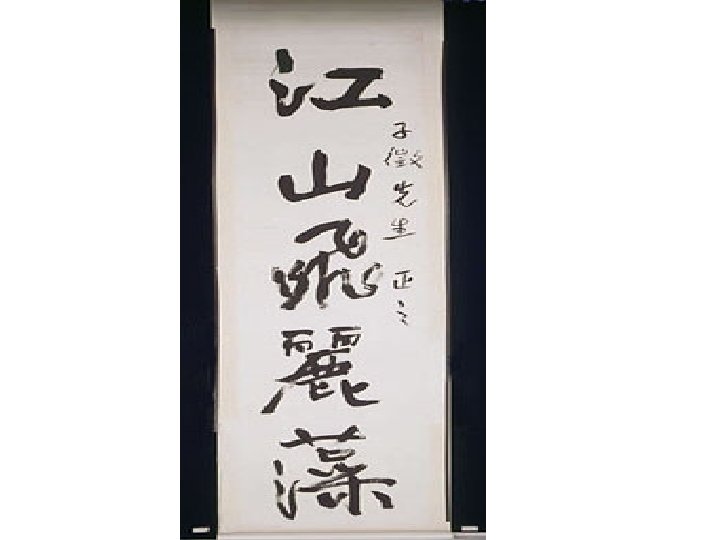 江山飛麗藻
子徵先生 正之